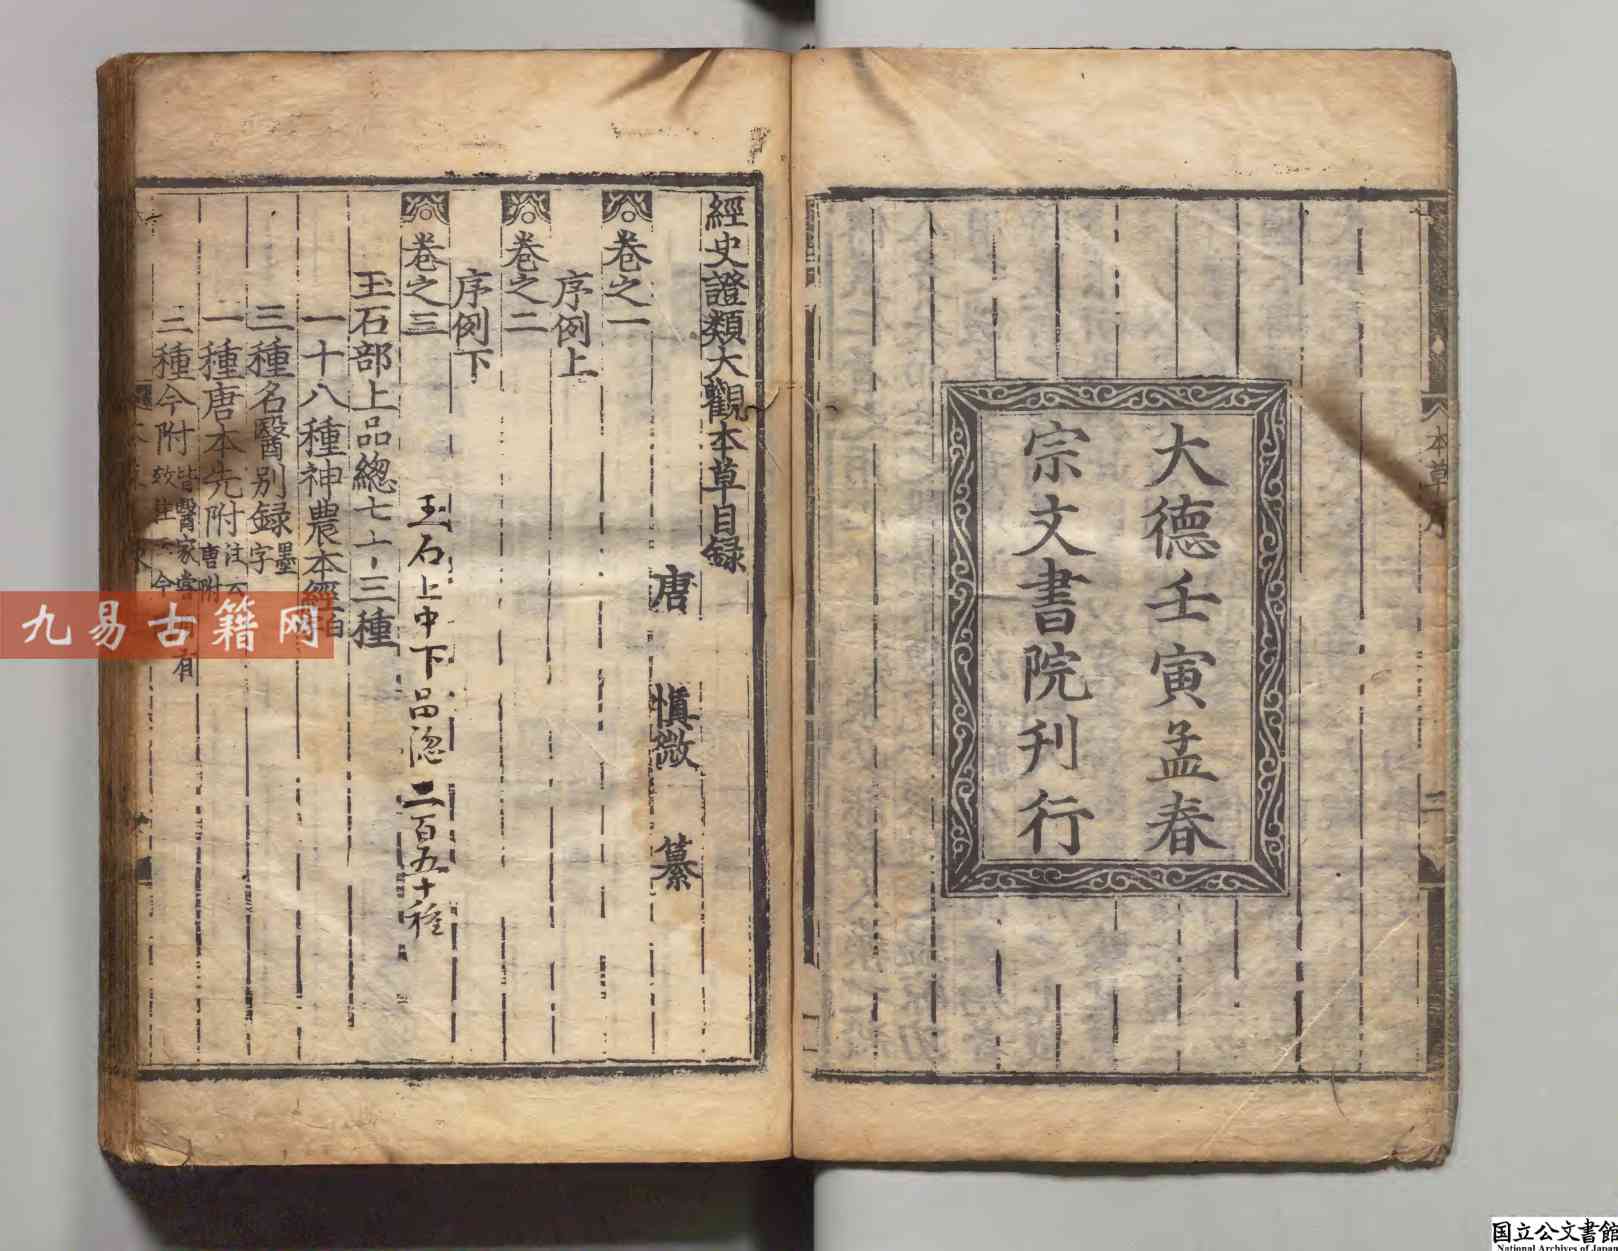 大德壬寅孟春
宗文書院刊行
本草序
二
經史證類大觀本草目録
唐 慎微 纂
卷之一
序例上
卷之二
序例下
卷之三
玉石上中下品總二百五十種
玉石部上品總七十三種
一十八種神農本經
三種名醫别録墨字
一種唐本先附注云唐附
二種今附皆醫家嘗 有
九易古籍网
国立公文書館
National Archives of Japan